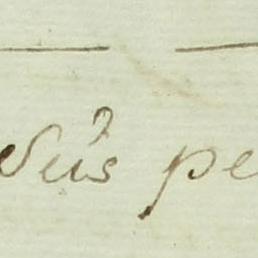 sus pe